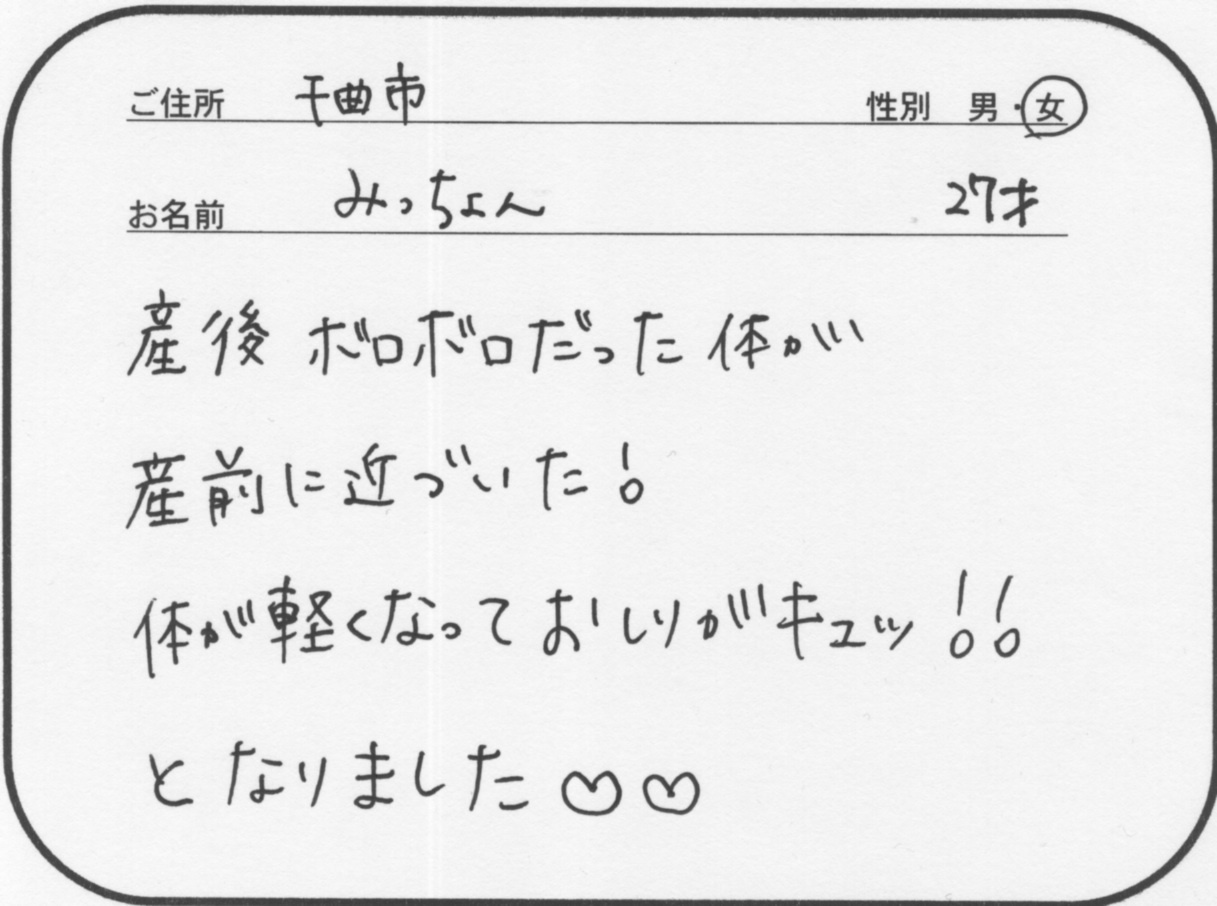 ご住所 千曲市 性別 男・女
お名前 みっちょん 27才
産後 ボロボロだった 体が
産前に近づいた!
体が軽くなって おしりがキュッ!!
となりました♡♡